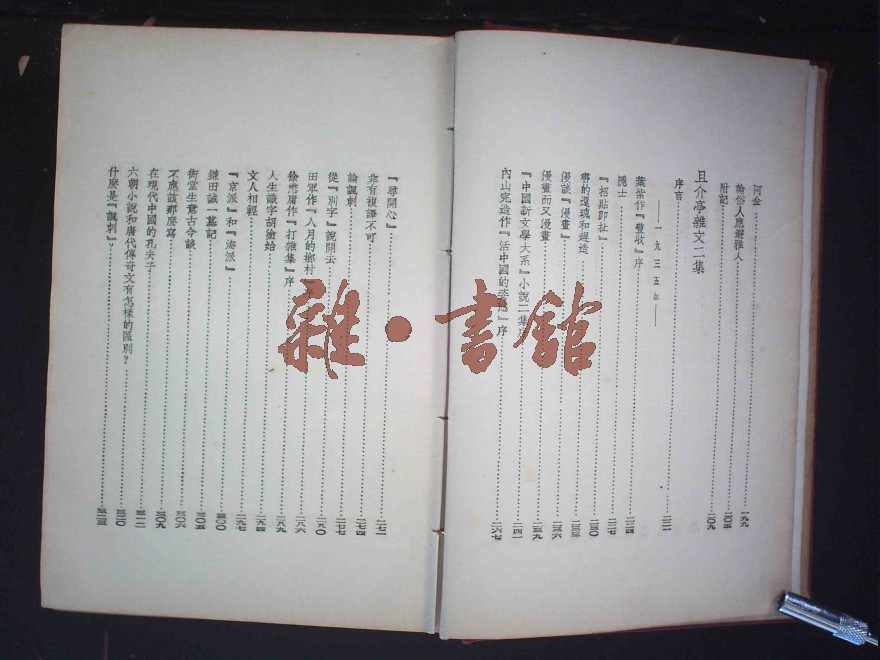 阿金 一九九
論俗人應避雅人 二〇五
附記 二〇九
且介亭雜文二集
一九三五年
序言
葉紫作『豐收』序 二二四
隱士 二二七
『招貼即扯』 二三〇
書的還魂和趕造
漫談『漫畫』 二三六
漫畫而又漫畫 二三九
『中國新文學大系』小說二集 二四一
內山完造作『活中國的姿態』序 二六七
『尋開心』 二七一
非有複譯不可 二七四
論諷刺 二七七
從『別字』說開去 二八〇
田軍作『八月的鄉村』 二八六
徐懋庸作『打雜集』序 二八九
人生識字胡塗始 二九四
文人相輕 二九七
『京派』和『海派』 三〇〇
鎌田誠一墓記 三〇五
衖堂生意古今談 三〇六
不應該那麼寫 三〇九
在現代中國的孔夫子 三一二
六朝小說和唐代傳奇文有怎樣的區別？ 三二〇
什麼是『諷刺』？
雜·書館